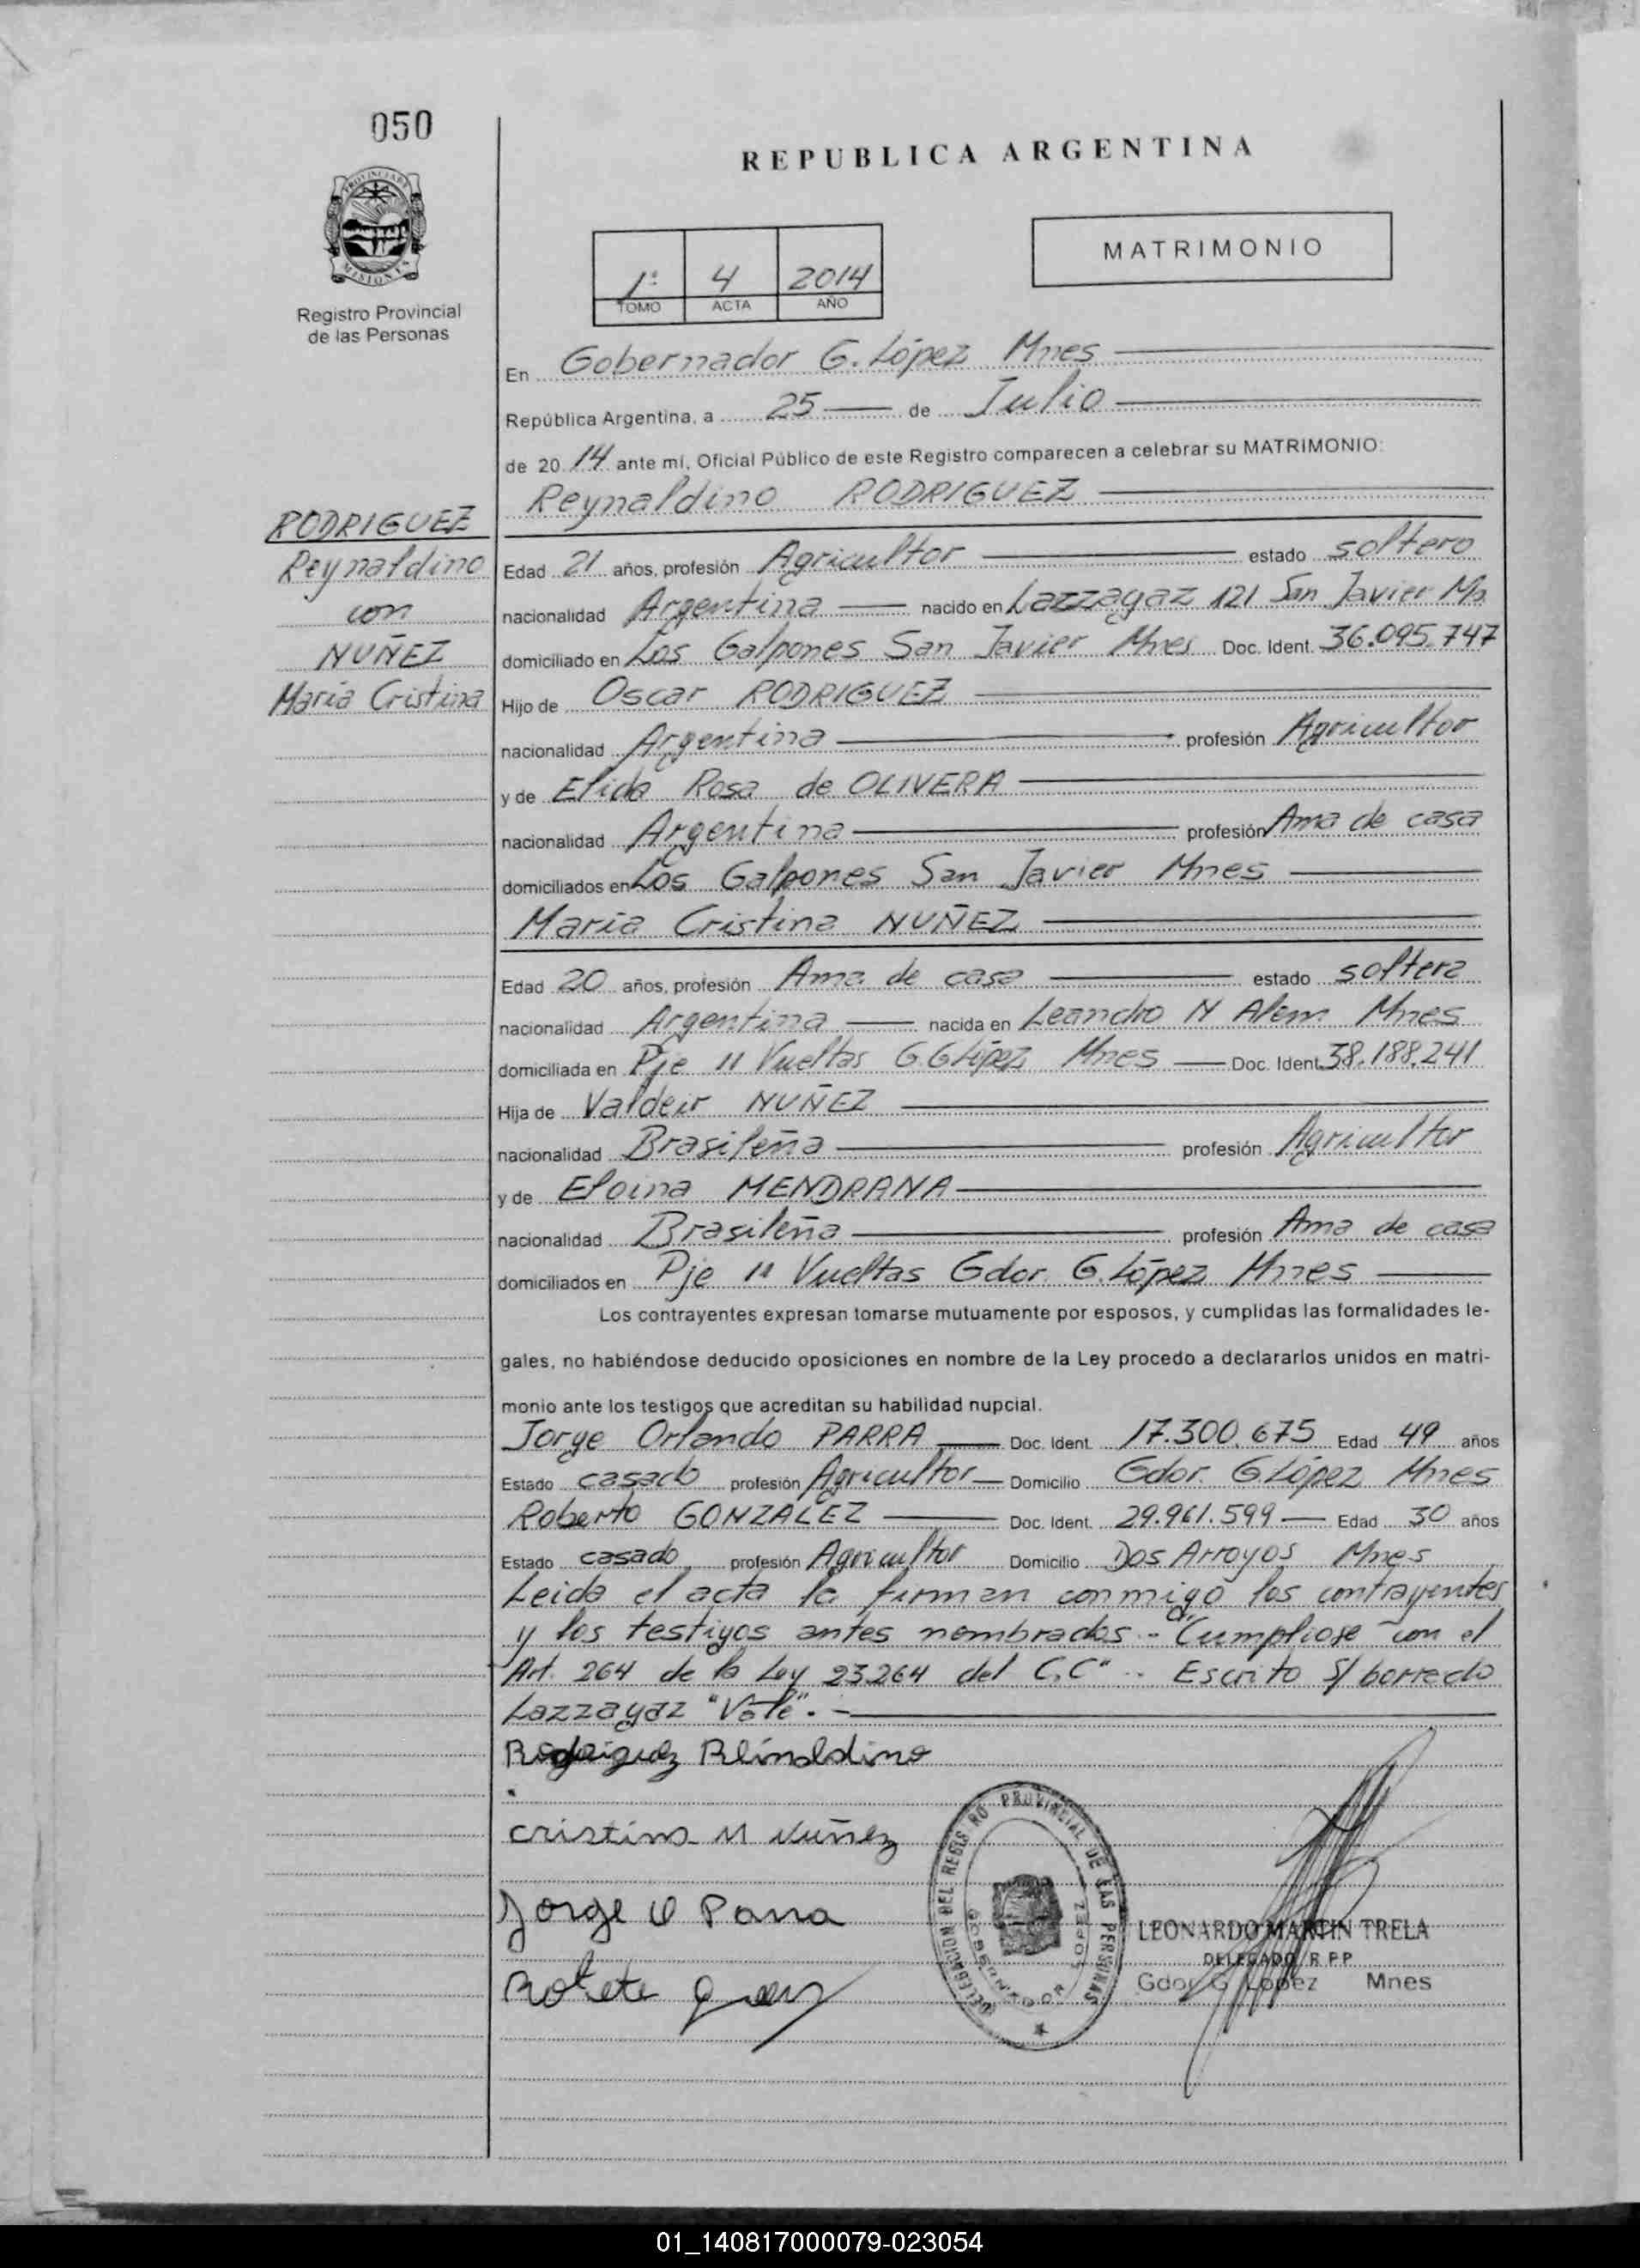 050
REPUBLICA ARGENTINA
PROVINCIA DE
MISIONES
Registro Provincial
de las Personas
1º 4 2014
TOMO ACTA AÑO
MATRIMONIO
En Gobernador G. López Mnes
República Argentina, a 25 de Julio
de 2014 ante mí, Oficial Público de este Registro comparecen a celebrar su MATRIMONIO:
Reynaldino RODRIGUEZ
RODRIGUEZ
Reynaldino
con
NUÑEZ
María Cristina
Edad 21 años, profesión Agricultor estado soltero
nacionalidad Argentina nacido en Lazzagaz 121 San Javier Ms
domiciliado en Los Galpones San Javier Mnes Doc. Ident. 36.095.747
Hijo de Oscar RODRIGUEZ
nacionalidad Argentina profesión Agricultor
y de Elida Rosa de OLIVERA
nacionalidad Argentina profesión Ama de casa
domiciliados en Los Galpones San Javier Mnes
María Cristina NUÑEZ
Edad 20 años, profesión Ama de casa estado soltera
nacionalidad Argentina nacida en Leandro N Alem Mnes
domiciliada en Pje 11 Vueltas G. G López Mnes Doc. Ident. 38.188.241
Hija de Valdeir NUÑEZ
nacionalidad Brasileña profesión Agricultor
y de Eloina MENDRANA
nacionalidad Brasileña profesión Ama de casa
domiciliados en Pje 11 Vueltas Gdor. G. López Mnes
Los contrayentes expresan tomarse mutuamente por esposos, y cumplidas las formalidades le-
gales, no habiéndose deducido oposiciones en nombre de la Ley procedo a declararlos unidos en matri-
monio ante los testigos que acreditan su habilidad nupcial.
Jorge Orlando PARRA Doc. Ident. 17.300.675 Edad 49 años
Estado casado profesión Agricultor Domicilio Gdor. G López Mnes
Roberto GONZALEZ Doc. Ident. 29.961.599 Edad 30 años
Estado casado profesión Agricultor Domicilio Dos Arroyos Mnes
Leida el acta la firman conmigo los contrayentes
y los testigos antes nombrados.- "Cumpliose con el
Art. 264 de la Ley 23264 del C.C".. Escrito S/ borrado
Lazzagaz "Vale".-
Rodriguez Reinaldino
cristina M Nuñez
Jorge O Parra
DELEGACION DEL REGISTRO PROVINCIAL DE LAS PERSONAS
GOBERNADOR LOPEZ
LEONARDO MARTIN TRELA
DELEGADO R P P
Gdor G López Mnes
01_140817000079-023054